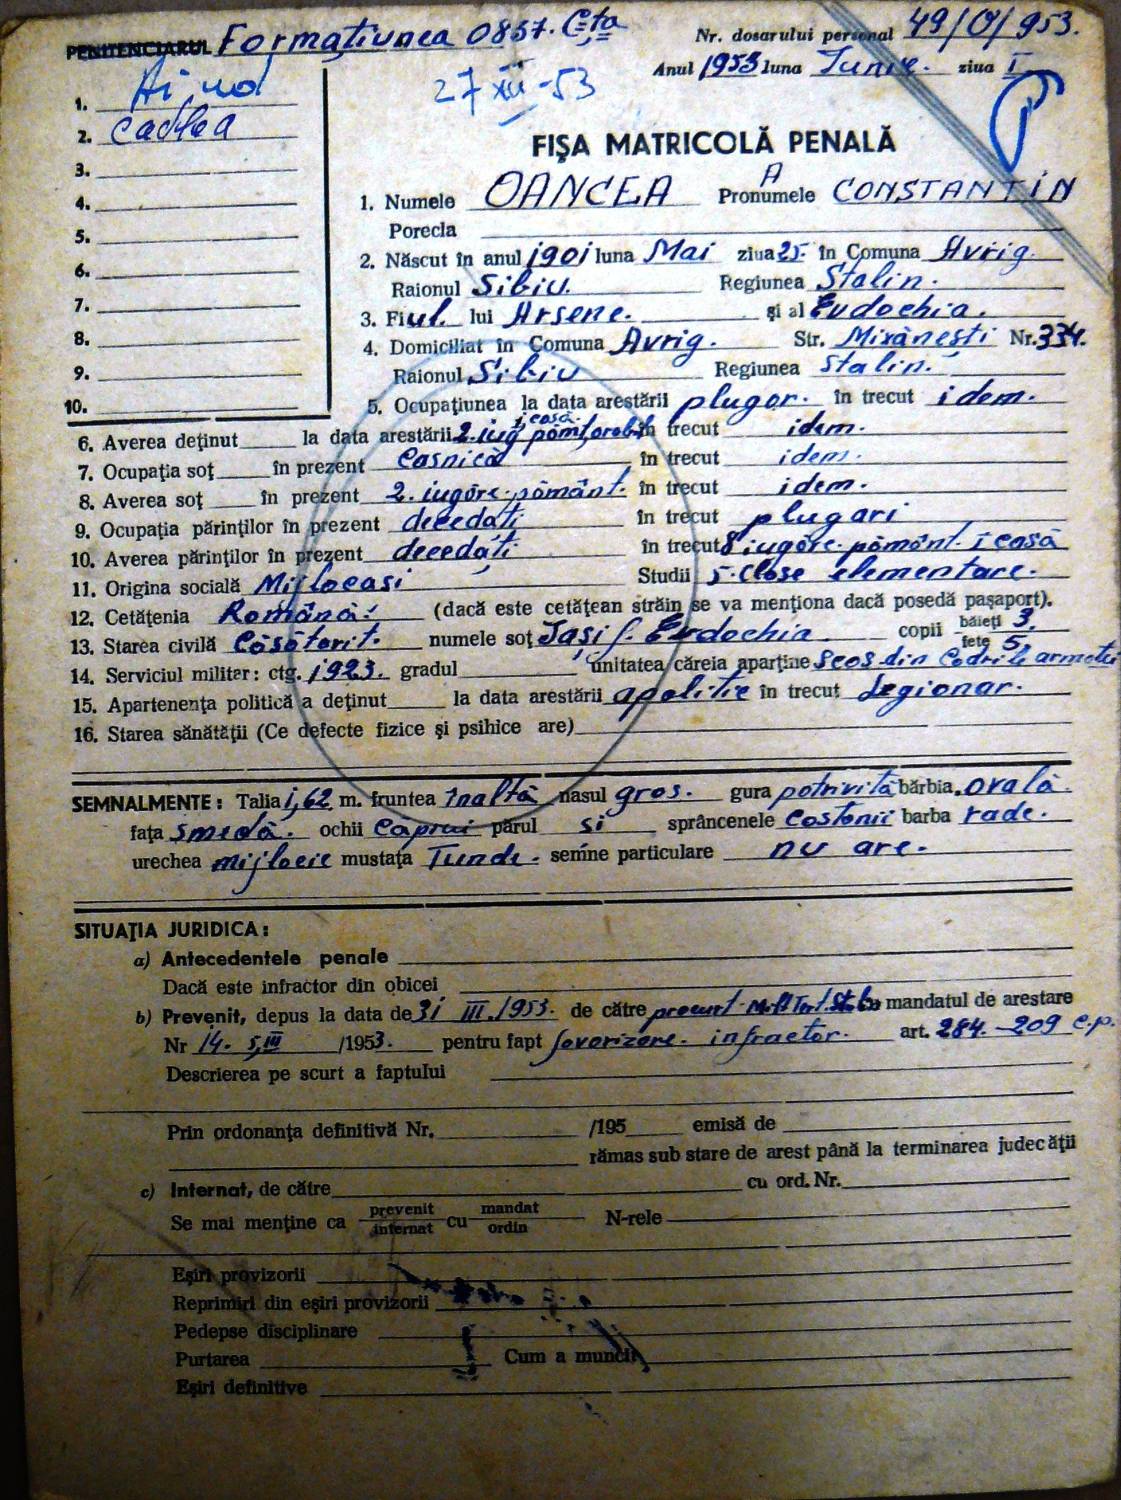 PENITENCIARUL Formațiunea 0837. C-ța
Nr. dosarului personal 49/O/953.
Anul 1953 luna Iunie. ziua I
27 XII-53
1. Aiud
2. Codlea
3.
4.
5.
6.
7.
8.
9.
10.
FIȘA MATRICOLĂ PENALĂ
1. Numele OANCEA A Pronumele CONSTANTIN
Porecla
2. Născut în anul 1901 luna Mai ziua 25. în Comuna Avrig.
Raionul Sibiu. Regiunea Stalin.
3. Fiul. lui Arsene. și al Eudochia.
4. Domiciliat în Comuna Avrig. Str. Mirănești Nr. 334.
Raionul Sibiu Regiunea Stalin.
5. Ocupațiunea la data arestării plugar. în trecut idem.
6. Averea deținut la data arestării 2. iug pămînt, arabil 1 casă. în trecut idem.
7. Ocupația soț în prezent Casnică în trecut idem.
8. Averea soț în prezent 2. iugăre. pămînt. în trecut idem.
9. Ocupația părinților în prezent decedați în trecut plugari
10. Averea părinților în prezent decedați în trecut 8 iugăre. pămînt. 1 casă
11. Origina socială Mijlocași Studii 5. clase elementare.
12. Cetățenia Română. (dacă este cetățean străin se va menționa dacă posedă pașaport).
13. Starea civilă Căsătorit. numele soț Iași f. Eudochia copii băieți 3. fete 5.
14. Serviciul militar: ctg. 1923. gradul unitatea căreia aparține Scos din Cadrile armatei
15. Apartenența politică a deținut la data arestării apolitic în trecut Legionar.
16. Starea sănătății (Ce defecte fizice și psihice are)
SEMNALMENTE: Talia 1,62 m. fruntea înaltă nasul gros. gura potrivită bărbia. ovală.
fața smedă. ochii Caprui părul și sprâncenele Castanii barba rade.
urechea mijlocie mustața Tunde. semne particulare nu are.
SITUAȚIA JURIDICA:
a) Antecedentele penale
Dacă este infractor din obicei
b) Prevenit, depus la data de 31 III. 1953. de către procurt. Milt Tert. Stalin cu mandatul de arestare
Nr 14. 5,III /1953. pentru fapt favorizare. infractor. art. 284. - 209 c.p.
Descrierea pe scurt a faptului
Prin ordonanța definitivă Nr. /195 emisă de
rămas sub stare de arest până la terminarea judecății
c) Internat, de către cu ord. Nr.
Se mai menține ca prevenit internat cu mandat ordin N-rele
Eșiri provizorii
Reprimiri din eșiri provizorii
Pedepse disciplinare
Purtarea Cum a muncit
Eșiri definitive